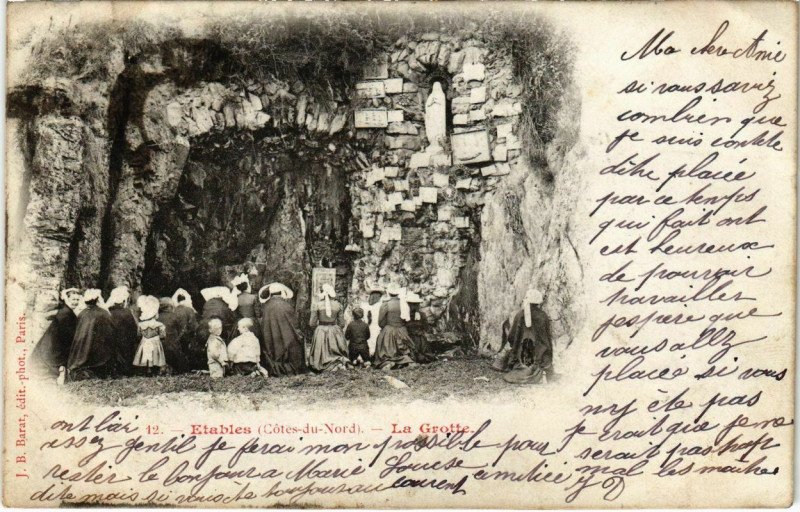 Ma chere Amie
si vous saviez
combien que
je suis conte
dêtre placée
par ce temps
qui fait ont
est heureux
de pouvoir
travailler
jespere que
vous allz
placée si vous
ny ête pas
je croit que je ne
serait pas
mal les
ont lair
12. — Etables (Côtes-du-Nord). — La Grotte.
assez gentil je ferai mon possible pour
rester le bonjour a Marie Louise
dite mais si vous Laurent
J. B. Barat, édit.-phot., Paris.